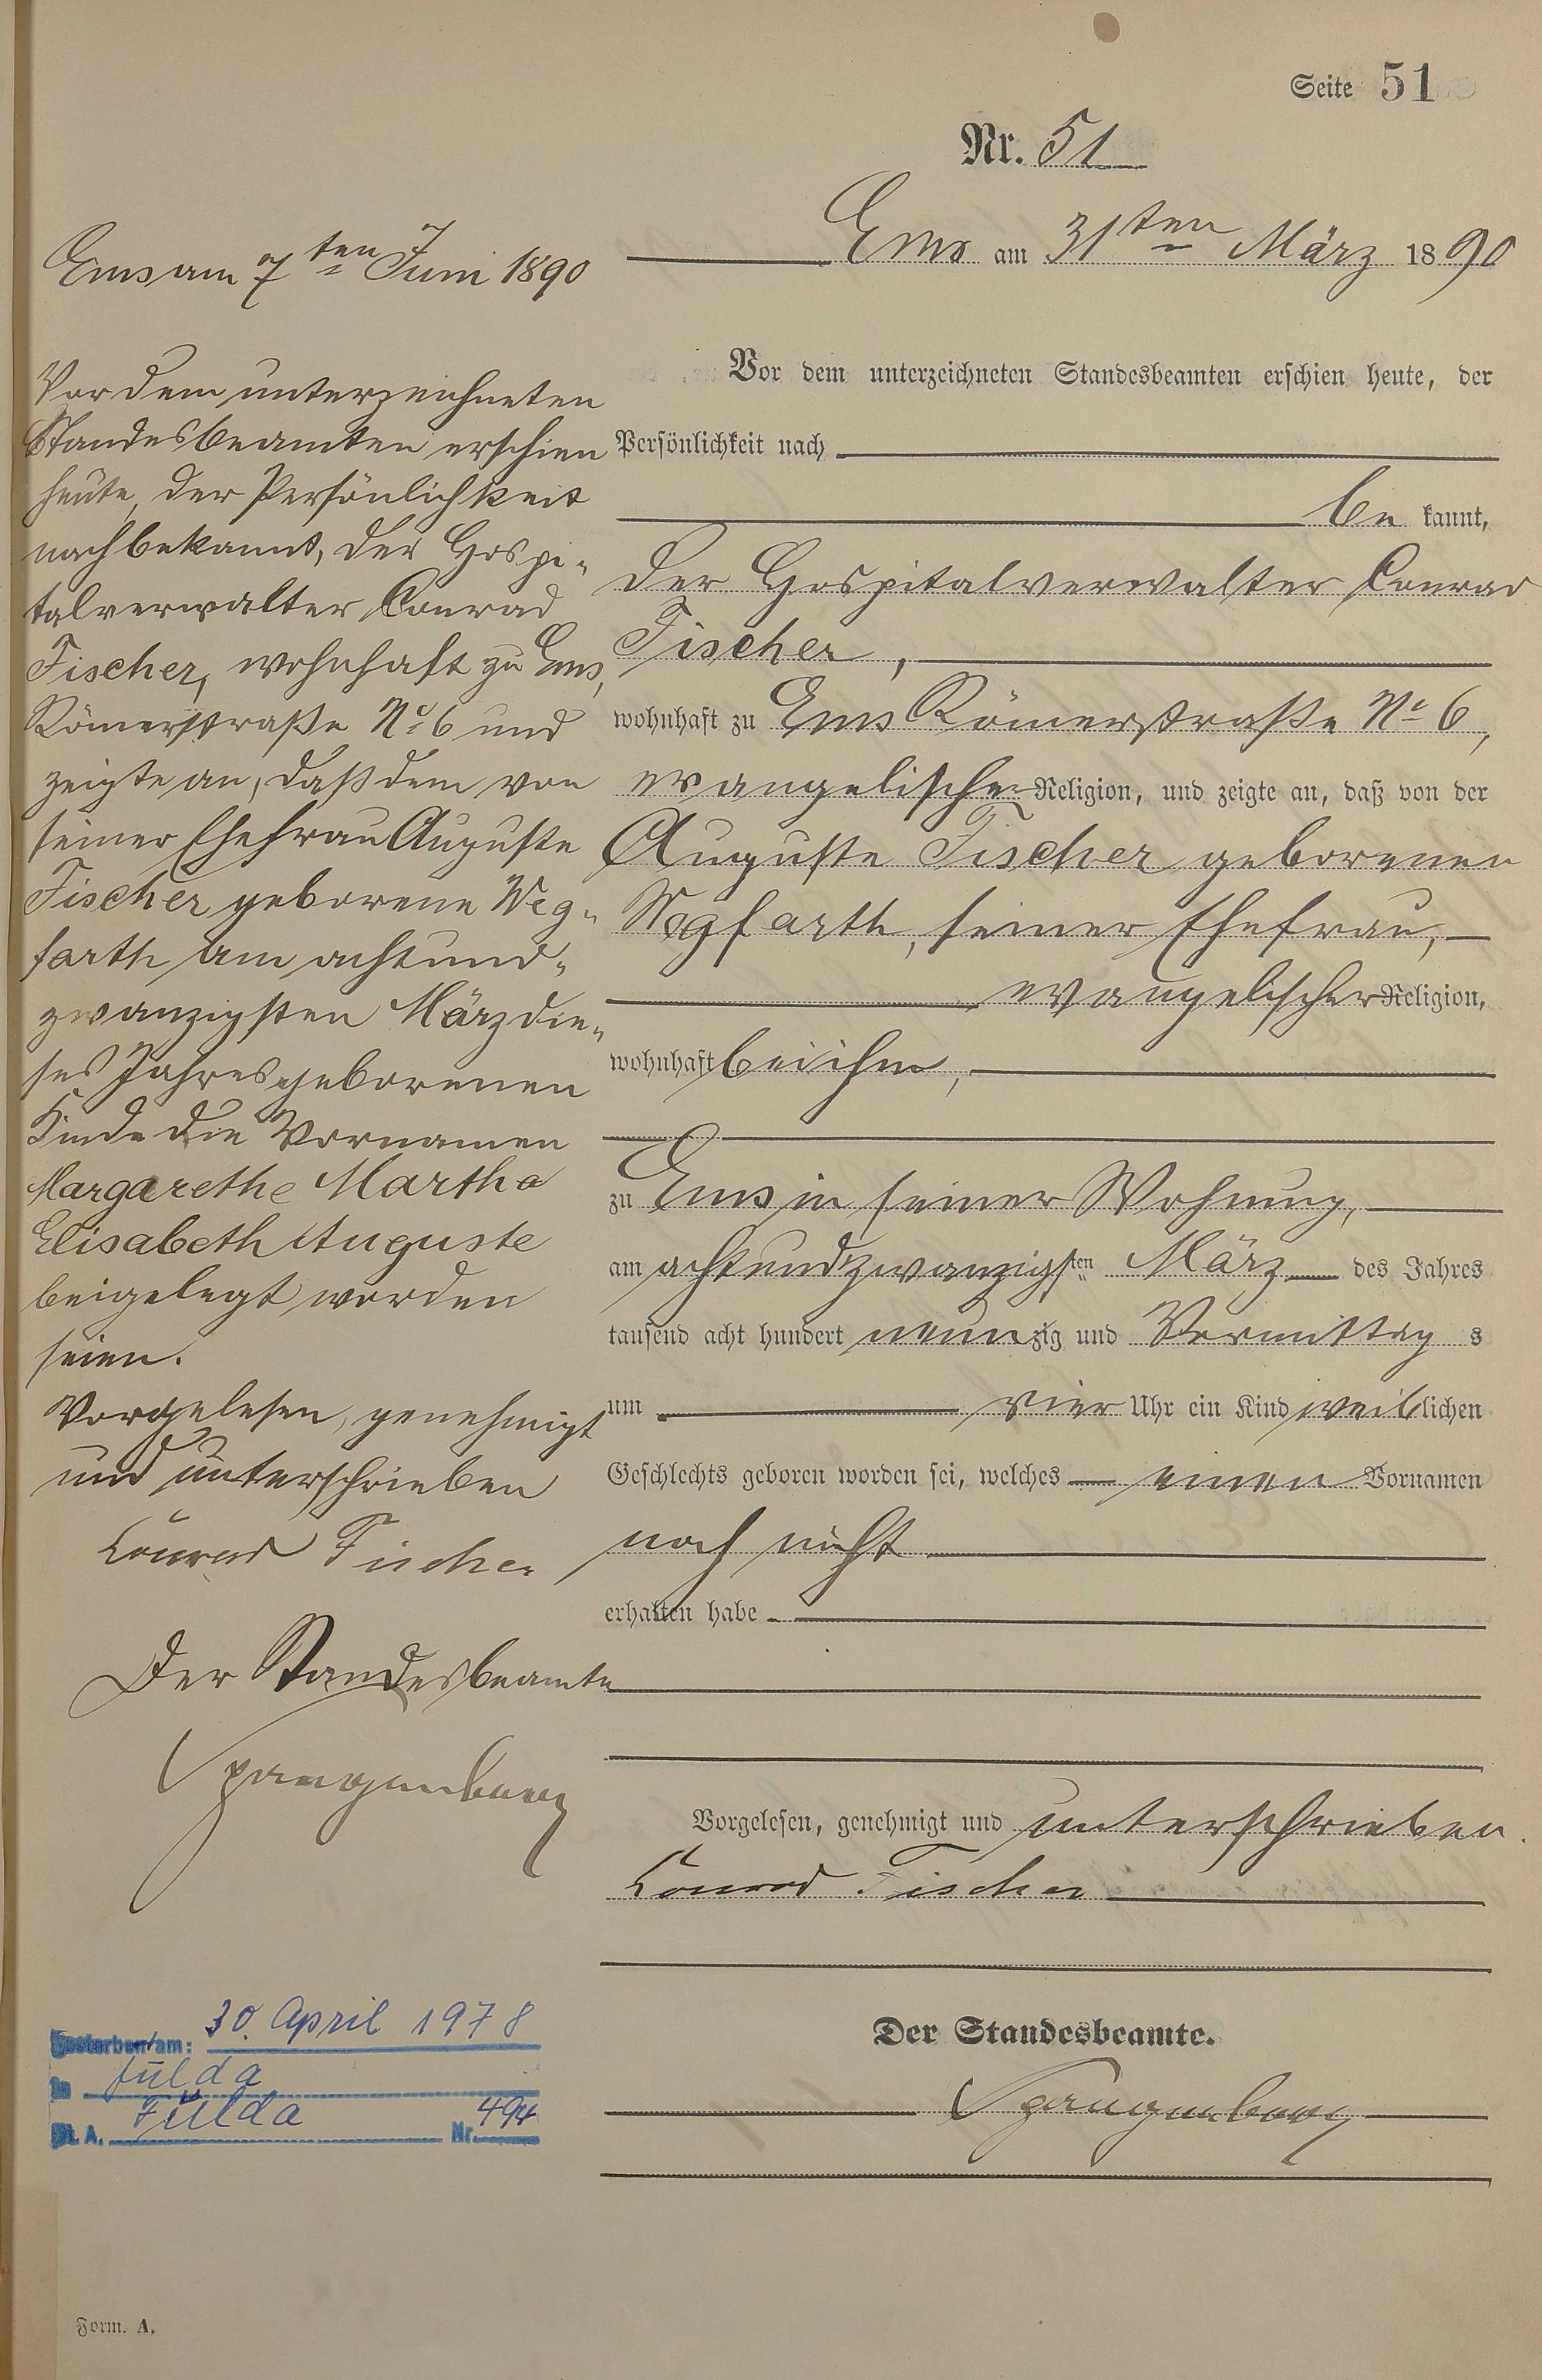 Seite 51
Nr. 51
Ems am 31ten März 1890
Vor dem unterzeichneten Standesbeamten erschien heute, der
Persönlichkeit nach
be kannt,
der Hospitalverwalter Conrad
Fischer,
wohnhaft zu Ems Römerstraße No 6,
evangelischer Religion, und zeigte an, daß von der
Auguste Fischer geborenen
Wegfarth, seiner Ehefrau,
evangelischer Religion,
wohnhaft bei ihm,
zu Ems in seiner Wohnung,
am achtundzwanzigsten März des Jahres
tausend acht hundert neunzig und Vormittag s
um vier Uhr ein Kind weiblichen
Geschlechts geboren worden sei, welches einen Vornamen
noch nicht
erhalten habe
Vorgelesen, genehmigt und unterschrieben.
Conrad Fischer
Der Standesbeamte.
Spangenberg
Ems am 7ten Juni 1890
Vor dem unterzeichneten
Standesbeamten erschien
heute, der Persönlichkeit
nach bekannt, der Hospi-
talverwalter Conrad
Fischer, wohnhaft zu Ems,
Römerstraße No 6 und
zeigte an, daß dem von
seiner Ehefrau Auguste
Fischer geborene Weg-
farth am achtund-
zwanzigsten März die-
ses Jahres geborenen
Kinde die Vornamen
Margarethe Martha
Elisabeth Auguste
beigelegt worden
seien.
Vorgelesen, genehmigt
und unterschrieben
Conrad Fischer
Der Standesbeamte
Spangenberg
Gestorben am: 30. April 1978
in Fulda
St. A. Fulda Nr. 494
Form. A.